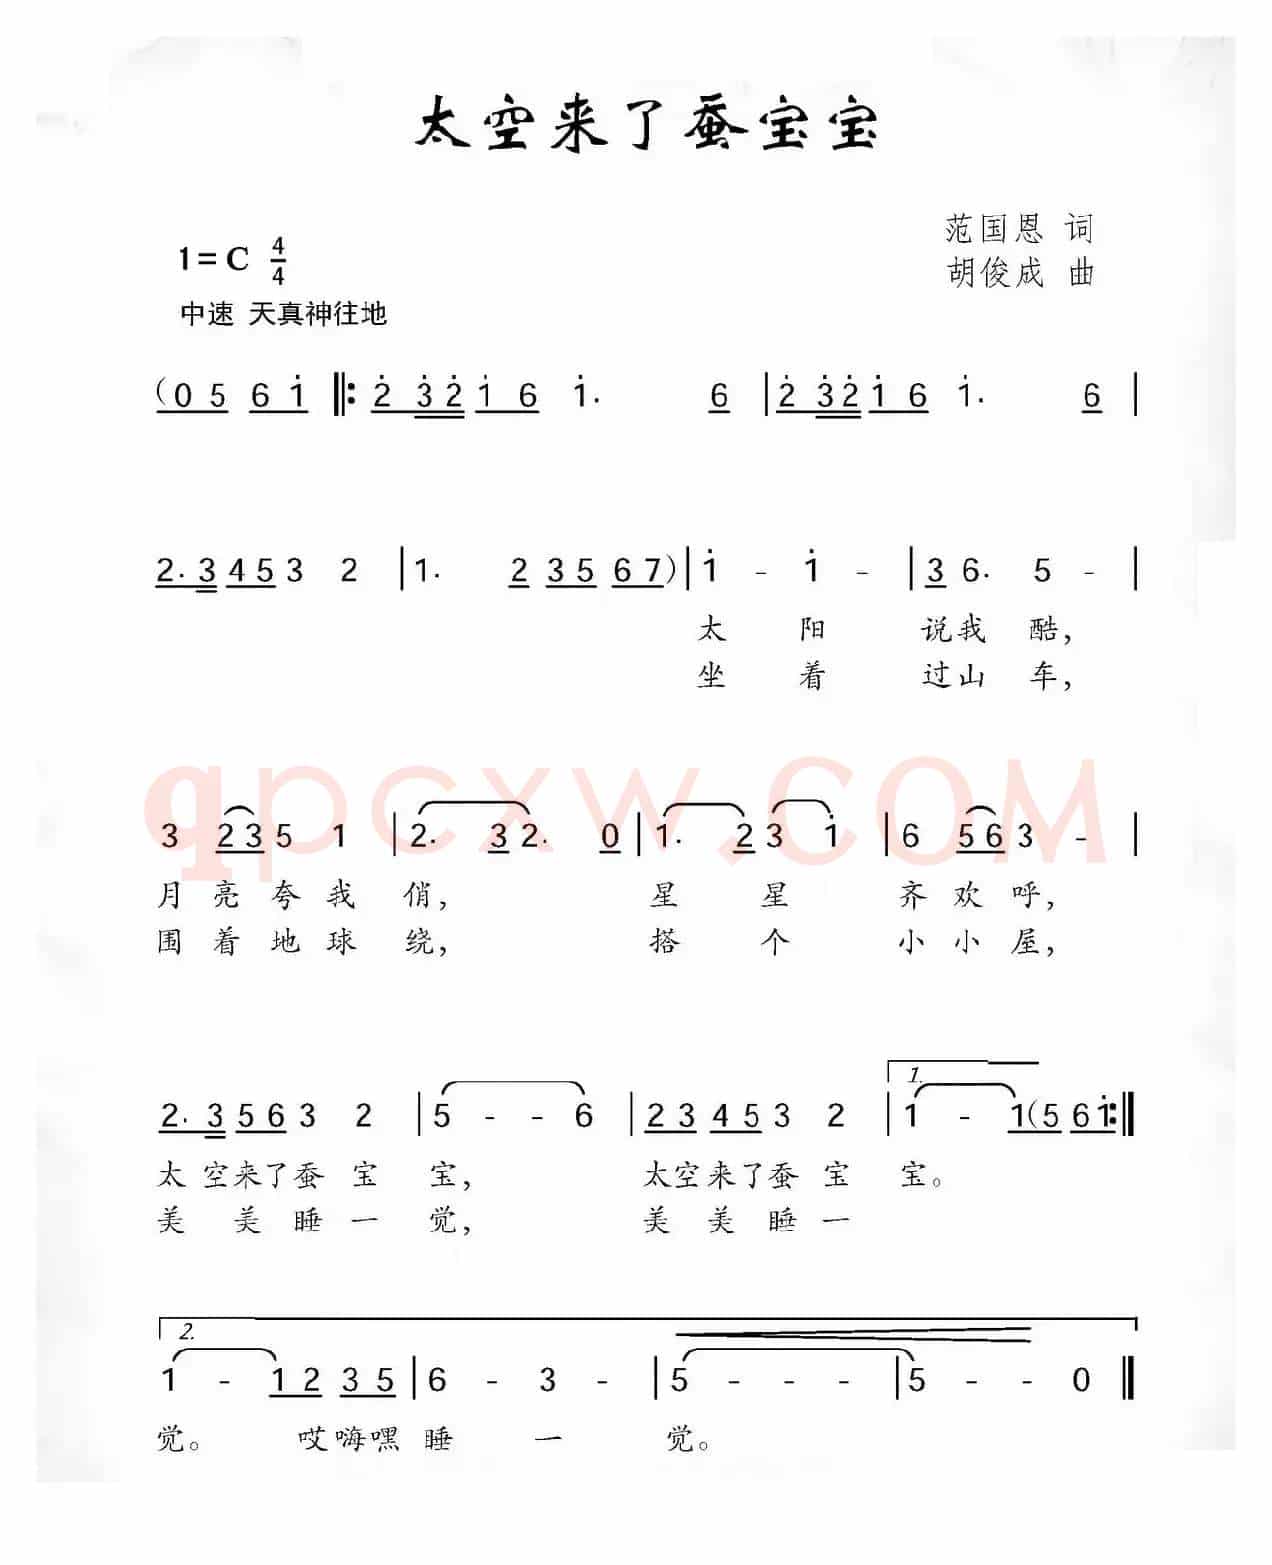 太空来了蚕宝宝
范国恩 词
胡俊成 曲
1=C 4/4
中速 天真神往地
(0 5 6 i ‖: 2̇ 3̇ 2̇ i 6 i. 6 | 2̇ 3̇ 2̇ i 6 i. 6 |
2. 3 4 5 3 2 | 1. 2 3 5 6 7) | i - i - | 3 6. 5 - |
太 阳 说我 酷,
坐 着 过山 车,
3 2 3 5 1 | 2. 3 2. 0 | 1. 2 3 i | 6 5 6 3 - |
月 亮 夸 我 俏, 星 星 齐 欢 呼,
围 着 地 球 绕, 搭 个 小 小 屋,
1.
2. 3 5 6 3 2 | 5 - - 6 | 2 3 4 5 3 2 | 1 - 1 (5 6 i :‖
太 空来了蚕 宝 宝, 太空来了蚕 宝 宝。
美 美 睡 一 觉, 美 美 睡 一
2.
1 - 1 2 3 5 | 6 - 3 - | 5 - - - | 5 - - 0 ‖
觉。 哎嗨嘿 睡 一 觉。
qpcxw.COM